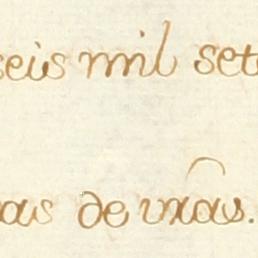 seis mil set
as de vras.